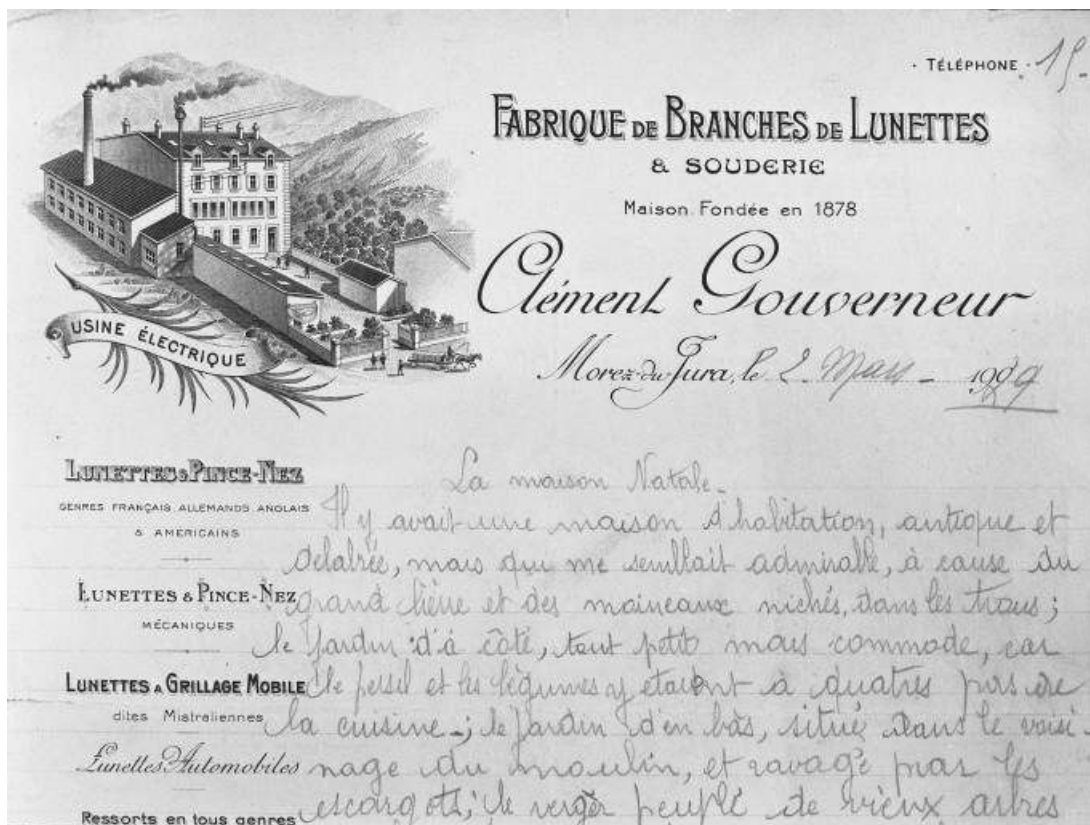 · TÉLÉPHONE · 15.
FABRIQUE DE BRANCHES DE LUNETTES
& SOUDERIE
Maison Fondée en 1878
Clément Gouverneur
USINE ÉLECTRIQUE
Morez-du-Jura, le 2 Mars - 1929
LUNETTES & PINCE-NEZ
GENRES FRANÇAIS ALLEMANDS ANGLAIS
& AMERICAINS
LUNETTES & PINCE-NEZ
MÉCANIQUES
LUNETTES A GRILLAGE MOBILE
dites Mistraliennes
Lunettes Automobiles
Ressorts en tous genres
La maison Natale.
Il y avait une maison d'habitation, antique et
delabrée, mais qui me semblait admirable, à cause du
grand lierre et des moineaux nichés, dans les trous;
le jardin d'à côté, tout petit mais commode, car
le persil et les légumes y étaient à quatres pas de
la cuisine; le jardin d'en bas, situé dans le voisi-
nage du moulin, et ravagé par les
escargots; le verger peuplé de vieux arbres